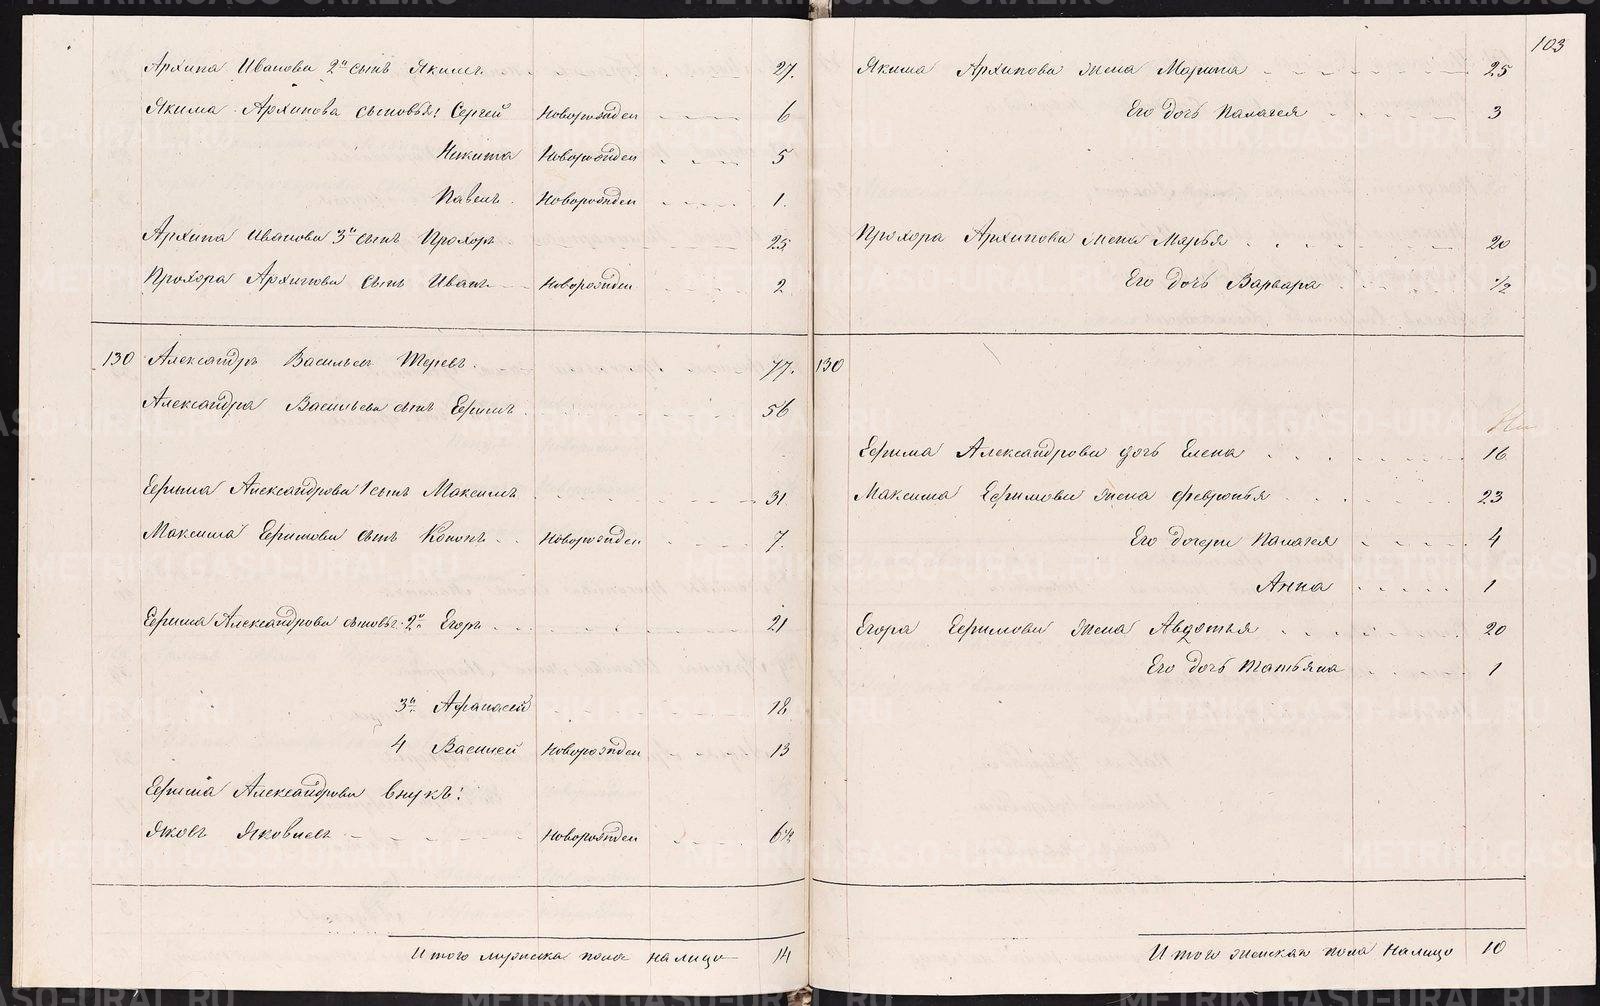 Архипа Иванова 2й сынъ Якимъ 27.
Якима Архипова сыновья: Сергей Новорожден 6
Никита Новорожден 5
Павелъ Новорожден 1.
Архипа Иванова 3й сынъ Прохоръ 25
Прохора Архипова сынъ Иванъ Новорожден 2
130 Александръ Васильев 77.
Александра Васильева сынъ Ефимъ 56
Ефима Александрова 1 сынъ Максимъ 31
Максима Ефимова сынъ Кононъ Новорожден 7.
Ефима Александрова сыновья 2й Егоръ 21
3й Афанасей 18
4 Василей Новорожден 13
Ефима Александрова внукъ:
Яковъ Яковлевъ Новорожден
Итого мужеска пола налицо 14
103
Якима Архипова жена Марина 25
Его дочь Палагея 3
Прохора Архипова жена Марья 20
Его дочь Варвара 1/2
130
Ефима Александрова дочь Елена 16
Максима Ефимова жена Февронья 23
Его дочери Палагея 4
Анна 1
Егора Ефимова жена Авдотья 20
Его дочь Татьяна 1
Итого женска пола налицо 10
METRIKI.GASO-URAL.RU